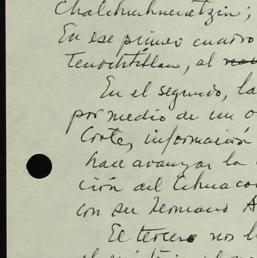 Chalchiuhnenetzin;
En ese primer cuadro
Tenochtitlan, al
En el segundo, la
por medio de un o
Corte, información
hace avanzar la
ción del Cihuaco
con su hermano A
El tercero nos l